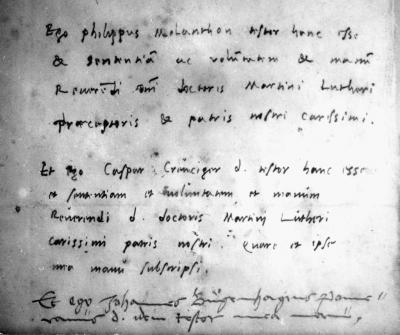 Ego philippus Melanthon testor hanc esse
& sententiã ac voluntatem & manũ
Reverẽdi dñi doctoris Martini Lutheri
præceptoris & patris nostri carissimi.
Et ego Caspar Creuciger d. testor hanc esse
et sententiam et voluntatem et manũm
Reverendi d. doctoris Martini Lutheri
carissimi patris nostri. Quare et ipse
mea manu subscripsi.
Et ego Johannes Bugenhagius Pome-
ranus d. idem testor mea manu.